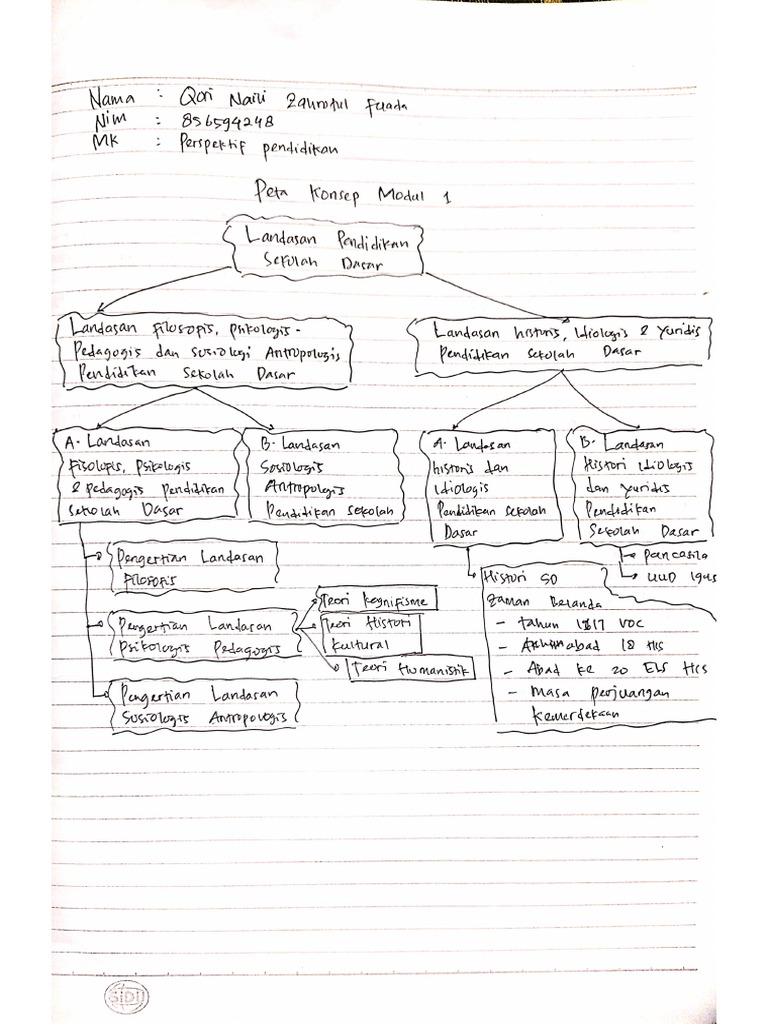 Nama : Qori Naili Zahrotul Fuada
Nim : 856594248
MK : Perspektif pendidikan
Peta Konsep Modul 1
Landasan Pendidikan
Sekolah Dasar
Landasan filosopis, psikologis -
Pedagogis dan sosiologi Antropologis
Pendidikan Sekolah Dasar
Landasan historis, Idiologis & Yuridis
Pendidikan sekolah Dasar
A. Landasan
Fisolofis, Psikologis
& Pedagogis Pendidikan
sekolah Dasar
B. Landasan
Sosiologis
Antropologis
Pendidikan sekolah
A. Landasan
historis dan
Idiologis
Pendidikan sekolah
Dasar
B. Landasan
Histori Idiologis
dan Yuridis
Pendidikan
Sekolah Dasar
Pancasila
UUD 1945
Pengertian Landasan
filosofis
Pengertian Landasan
Psikologis Pedagogis
Teori kognifisme
Teori Histori
kultural
Teori Humanistik
Pengertian Landasan
Susiologis Antropologis
Histori SD
Zaman Belanda
- tahun 1817 VOC
- Akhir abad 18 HIS
- Abad ke 20 ELS HCS
- Masa perjuangan
kemerdekaan
SiDU